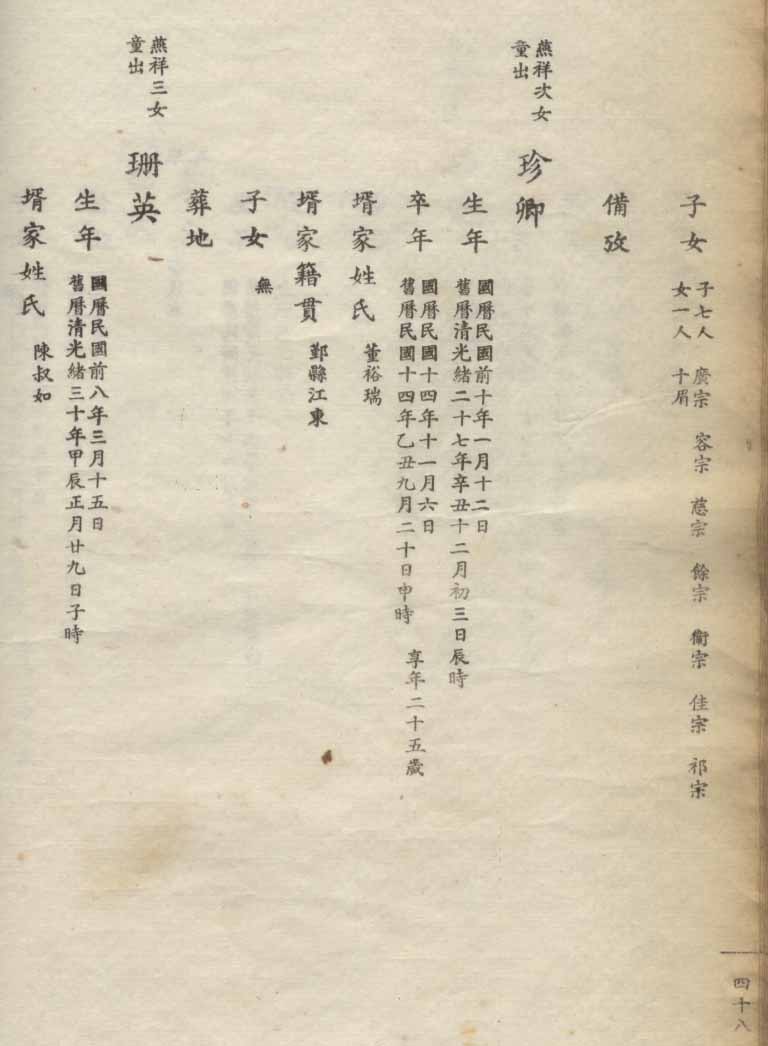 子女
子七人 廣宗 容宗 慈宗 餘宗 衛宗 佳宗 祁宗
女一人 十眉
備攷
燕祥次女
童出
珍卿
生年
國曆民國前十年一月十二日
舊曆清光緒二十七年辛丑十二月初三日辰時
卒年
國曆民國十四年十一月六日
舊曆民國十四年乙丑九月二十日申時 享年二十五歲
壻家姓氏 董裕瑞
壻家籍貫 鄞縣江東
子女 無
葬地
燕祥三女
童出
珊英
生年
國曆民國前八年三月十五日
舊曆清光緒三十年甲辰正月廿九日子時
壻家姓氏 陳叔如
四十八